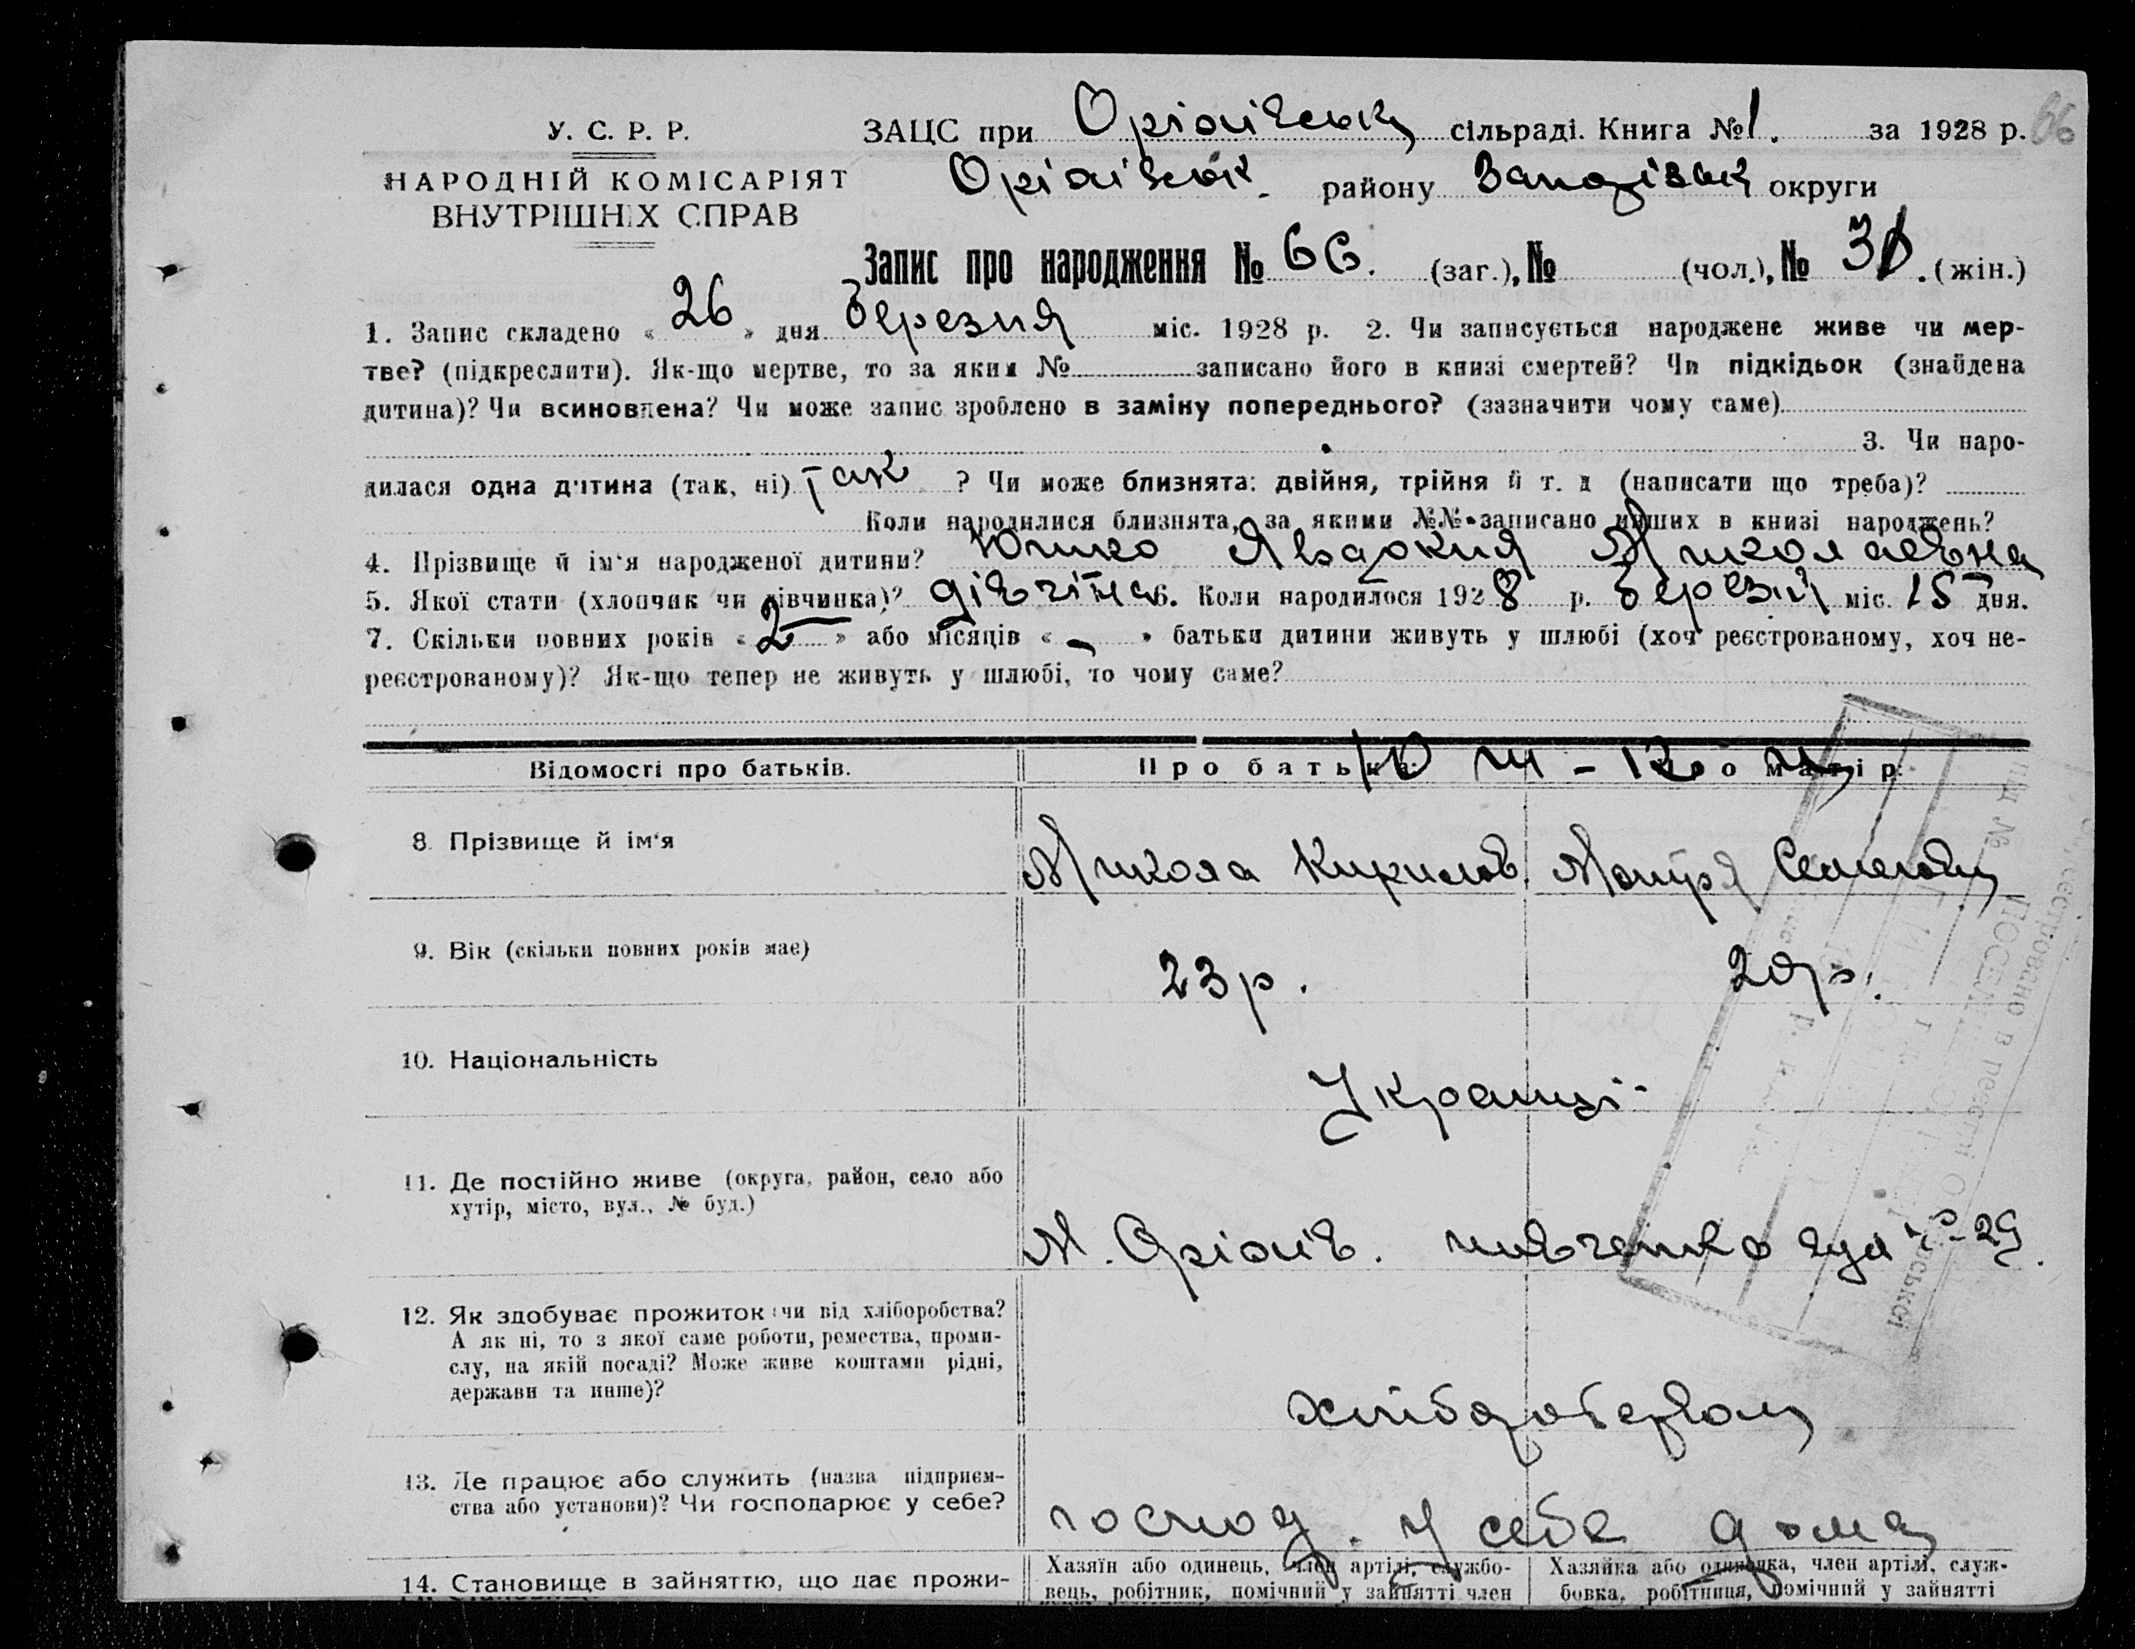 У. С. Р. Р.
НАРОДНІЙ КОМІСАРІЯТ
ВНУТРІШНІХ СПРАВ
ЗАЦС при Оріхівську сільраді. Книга № 1. за 1928 р. 66
Оріхівськ. району Запорізьк округи
Запис про народження № 66. (заг.), № (чол.), № 31. (жін.)
1. Запис складено « 26 » дня березня міс. 1928 р. 2. Чи записується народжене живе чи мер-
тве? (підкреслити). Як-що мертве, то за яким № записано його в книзі смертей? Чи підкідьок (знайдена
дитина)? Чи всиновлена? Чи може запис зроблено в заміну попереднього? (зазначити чому саме)
3. Чи наро-
дилася одна дитина (так, ні) так ? Чи може близнята: двійня, трійня й т. д (написати що треба)?
Коли народилися близнята, за якими №№ записано инших в книзі народжень?
4. Прізвище й ім'я народженої дитини? Явдокия Миколаевна
5. Якої стати (хлопчик чи дівчинка)? дівчіна 6. Коли народилося 1928 р. березня міс. 15 дня.
7. Скільки повних років « 2 » або місяців « - » батьки дитини живуть у шлюбі (хоч реєстрованому, хоч не-
реєстрованому)? Як-що тепер не живуть у шлюбі, то чому саме?
Відомості про батьків. Про батька: Про матір:
8. Прізвище й ім'я Микола Кирилов. Мотря Семенов
9. Вік (скільки повних років має) 23 р. 20 р.
10. Національність Україньці
11. Де постійно живе (округа, район, село або
хутір, місто, вул., № буд.)
М. Оріхів. Шевченка вул № 29.
12. Як здобуває прожиток: чи від хліборобства?
А як ні, то з якої саме роботи, ремества, проми-
слу, на якій посаді? Може живе коштами рідні,
держави та инше)?
хліборобством
13. Де працює або служить (назва підприєм-
ства або установи)? Чи господарює у себе?
господ. у себе дома
14. Становище в зайняттю, що дає прожи-
Хазяїн або одинець, член артілі, службо-
вець, робітник, помічний у зайнятті член
Хазяйка або одиначка, член артілі, служ-
бовка, робітниця, помічний у зайнятті